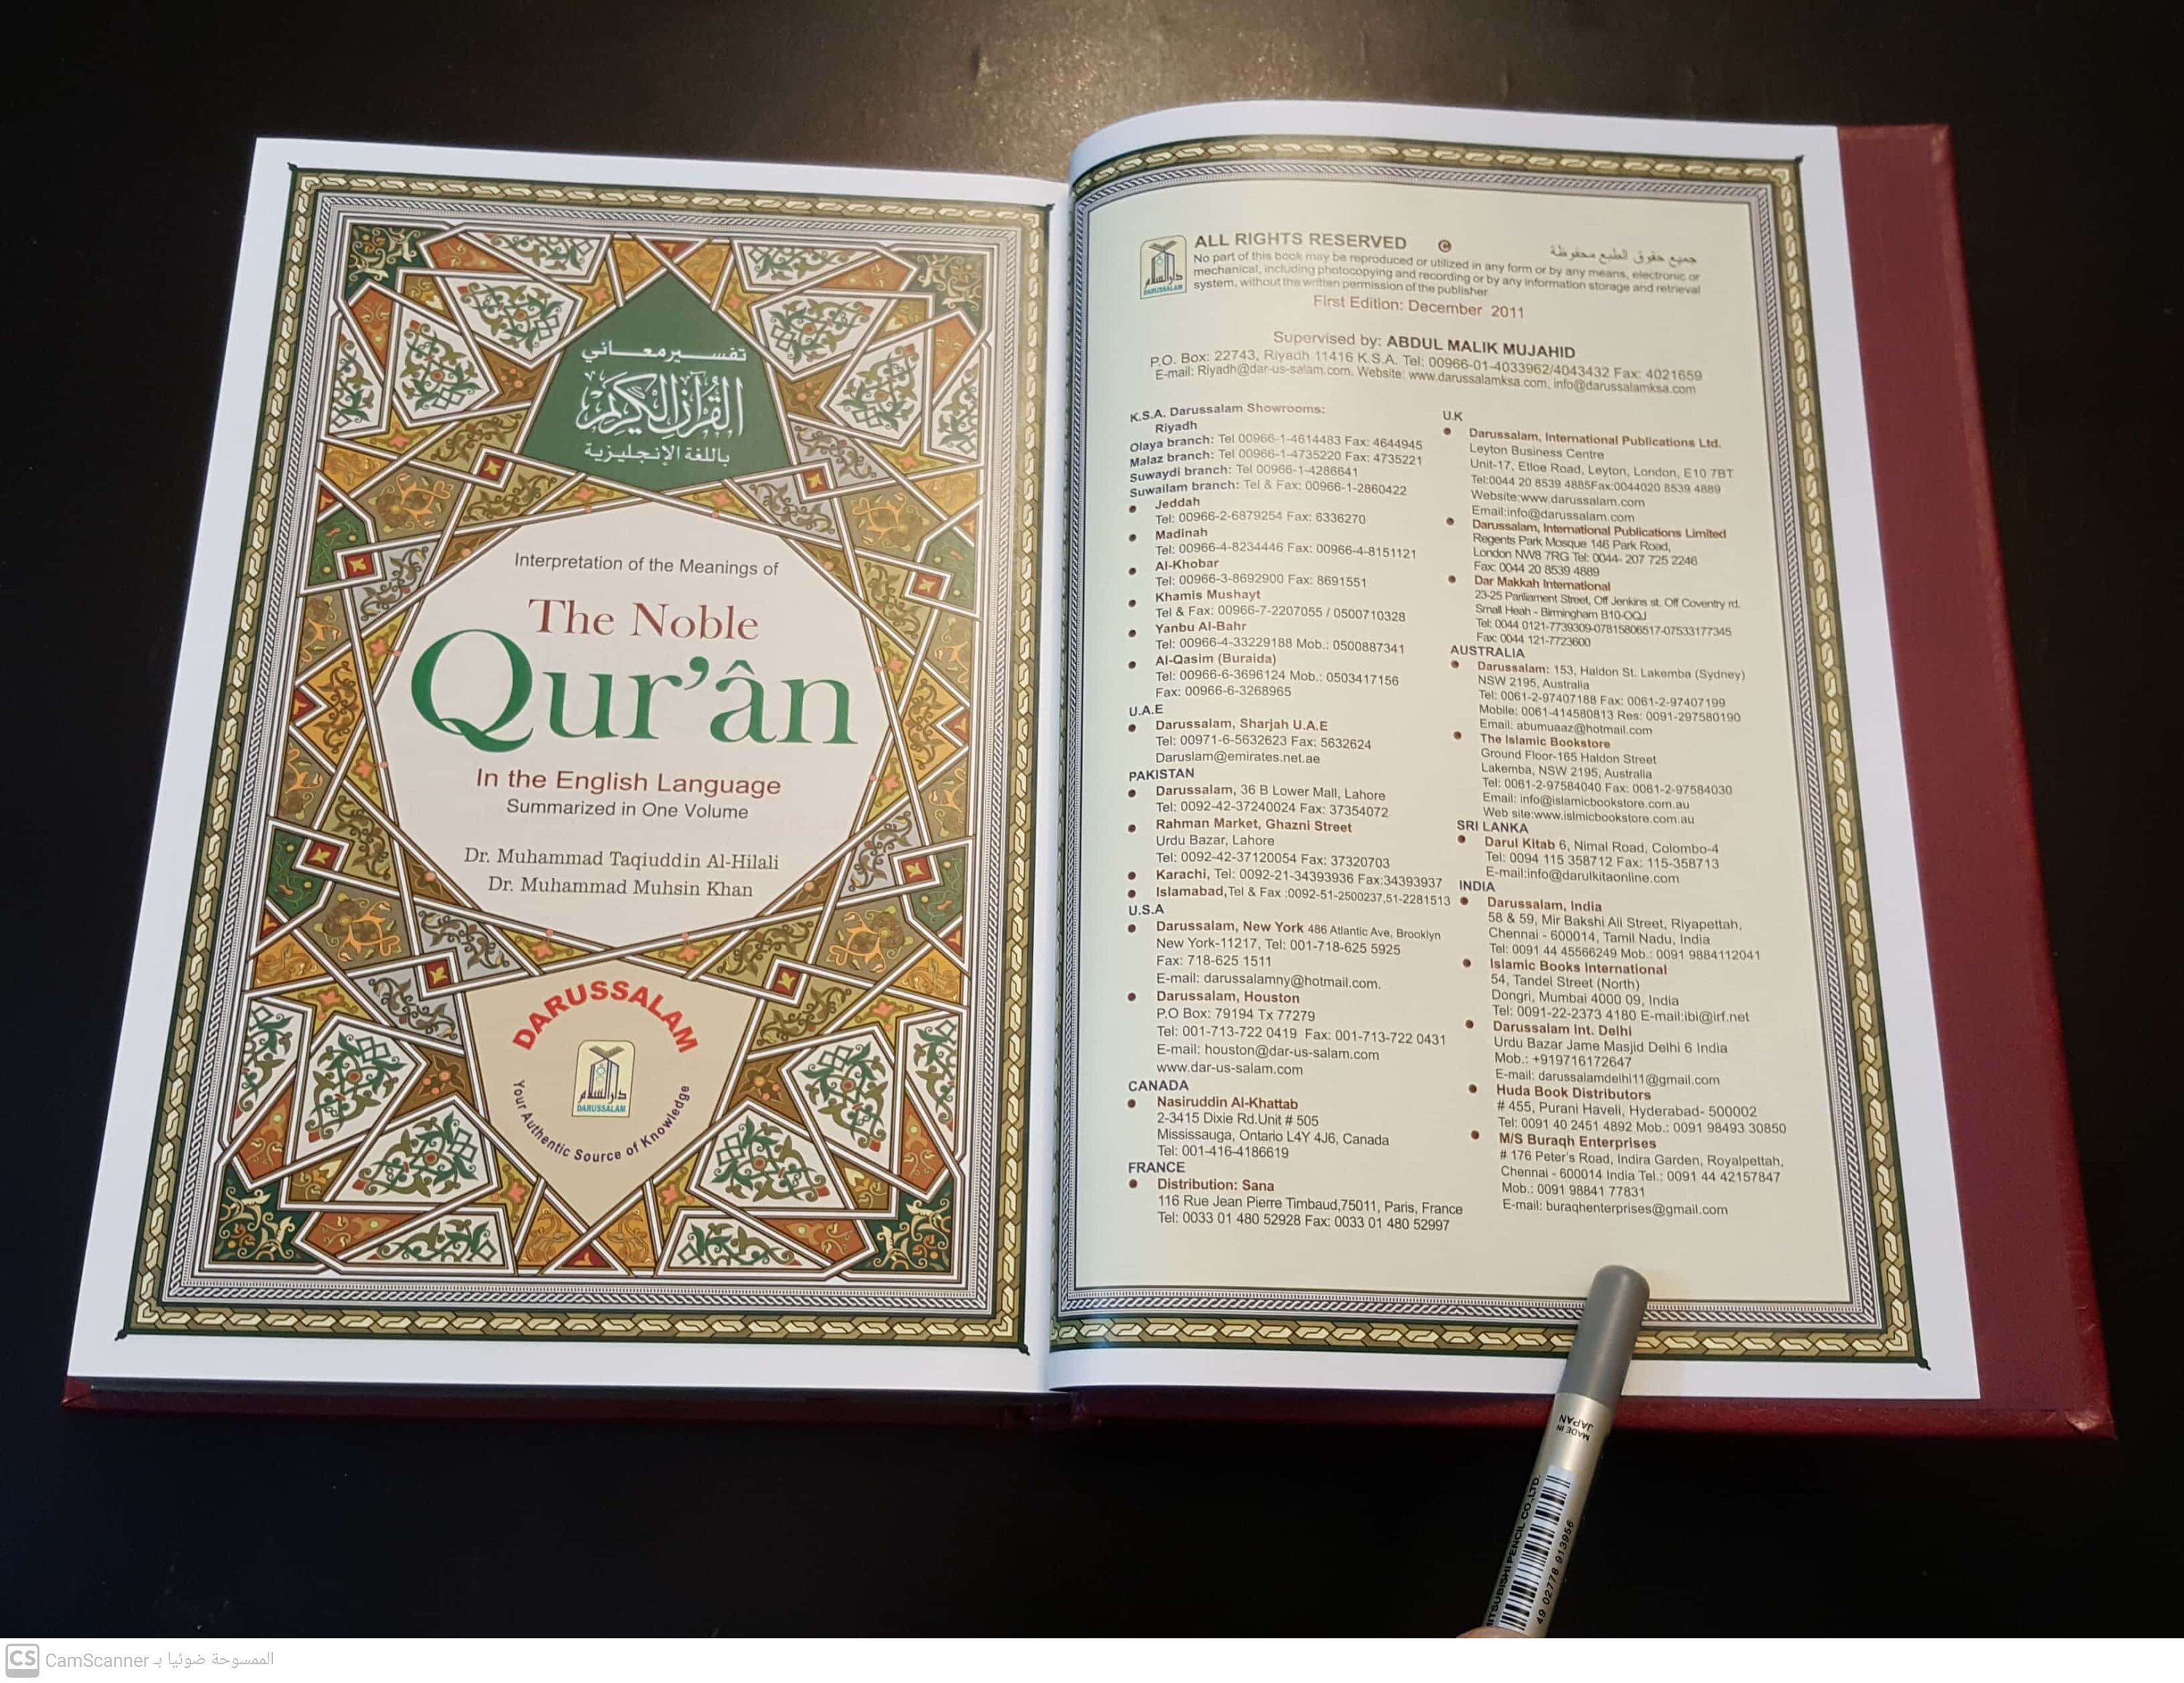 تفسير معاني
القرآن الكريم
باللغة الإنجليزية
Interpretation of the Meanings of
The Noble
Qur'ân
In the English Language
Summarized in One Volume
Dr. Muhammad Taqiuddin Al-Hilali
Dr. Muhammad Muhsin Khan
DARUSSALAM
دارالسلام
DARUSSALAM
Your Authentic Source of Knowledge
دارالسلام
DARUSSALAM
ALL RIGHTS RESERVED © جميع حقوق الطبع محفوظة
No part of this book may be reproduced or utilized in any form or by any means, electronic or
mechanical, including photocopying and recording or by any information storage and retrieval
system, without the written permission of the publisher
First Edition: December 2011
Supervised by: ABDUL MALIK MUJAHID
P.O. Box: 22743, Riyadh 11416 K.S.A. Tel: 00966-01-4033962/4043432 Fax: 4021659
E-mail: Riyadh@dar-us-salam.com. Website: www.darussalamksa.com, info@darussalamksa.com
K.S.A. Darussalam Showrooms:
Riyadh
Olaya branch: Tel 00966-1-4614483 Fax: 4644945
Malaz branch: Tel 00966-1-4735220 Fax: 4735221
Suwaydi branch: Tel 00966-1-4286641
Suwailam branch: Tel & Fax: 00966-1-2860422
• Jeddah
Tel: 00966-2-6879254 Fax: 6336270
• Madinah
Tel: 00966-4-8234446 Fax: 00966-4-8151121
• Al-Khobar
Tel: 00966-3-8692900 Fax: 8691551
• Khamis Mushayt
Tel & Fax: 00966-7-2207055 / 0500710328
• Yanbu Al-Bahr
Tel: 00966-4-33229188 Mob.: 0500887341
• Al-Qasim (Buraida)
Tel: 00966-6-3696124 Mob.: 0503417156
Fax: 00966-6-3268965
U.A.E
• Darussalam, Sharjah U.A.E
Tel: 00971-6-5632623 Fax: 5632624
Daruslam@emirates.net.ae
PAKISTAN
• Darussalam, 36 B Lower Mall, Lahore
Tel: 0092-42-37240024 Fax: 37354072
• Rahman Market, Ghazni Street
Urdu Bazar, Lahore
Tel: 0092-42-37120054 Fax: 37320703
• Karachi, Tel: 0092-21-34393936 Fax:34393937
• Islamabad,Tel & Fax :0092-51-2500237,51-2281513
U.S.A
• Darussalam, New York 486 Atlantic Ave, Brooklyn
New York-11217, Tel: 001-718-625 5925
Fax: 718-625 1511
E-mail: darussalamny@hotmail.com.
• Darussalam, Houston
P.O Box: 79194 Tx 77279
Tel: 001-713-722 0419 Fax: 001-713-722 0431
E-mail: houston@dar-us-salam.com
www.dar-us-salam.com
CANADA
• Nasiruddin Al-Khattab
2-3415 Dixie Rd.Unit # 505
Mississauga, Ontario L4Y 4J6, Canada
Tel: 001-416-4186619
FRANCE
• Distribution: Sana
116 Rue Jean Pierre Timbaud,75011, Paris, France
Tel: 0033 01 480 52928 Fax: 0033 01 480 52997
U.K
• Darussalam, International Publications Ltd.
Leyton Business Centre
Unit-17, Etloe Road, Leyton, London, E10 7BT
Tel:0044 20 8539 4885Fax:0044020 8539 4889
Website:www.darussalam.com
Email:info@darussalam.com
• Darussalam, International Publications Limited
Regents Park Mosque 146 Park Road,
London NW8 7RG Tel: 0044- 207 725 2246
Fax: 0044 20 8539 4889
• Dar Makkah International
23-25 Parliament Street, Off Jenkins st. Off Coventry rd.
Small Heah - Birmingham B10-OQJ
Tel: 0044 0121-7739309-07815806517-07533177345
Fax: 0044 121-7723600
AUSTRALIA
• Darussalam: 153, Haldon St. Lakemba (Sydney)
NSW 2195, Australia
Tel: 0061-2-97407188 Fax: 0061-2-97407199
Mobile: 0061-414580813 Res: 0091-297580190
Email: abumuaaz@hotmail.com
• The Islamic Bookstore
Ground Floor-165 Haldon Street
Lakemba, NSW 2195, Australia
Tel: 0061-2-97584040 Fax: 0061-2-97584030
Email: info@islamicbookstore.com.au
Web site:www.islmicbookstore.com.au
SRI LANKA
• Darul Kitab 6, Nimal Road, Colombo-4
Tel: 0094 115 358712 Fax: 115-358713
E-mail:info@darulkitaonline.com
INDIA
• Darussalam, India
58 & 59, Mir Bakshi Ali Street, Riyapettah,
Chennai - 600014, Tamil Nadu, India
Tel: 0091 44 45566249 Mob.: 0091 9884112041
• Islamic Books International
54, Tandel Street (North)
Dongri, Mumbai 4000 09, India
Tel: 0091-22-2373 4180 E-mail:ibi@irf.net
• Darussalam Int. Delhi
Urdu Bazar Jame Masjid Delhi 6 India
Mob.: +919716172647
E-mail: darussalamdelhi11@gmail.com
• Huda Book Distributors
# 455, Purani Haveli, Hyderabad- 500002
Tel: 0091 40 2451 4892 Mob.: 0091 98493 30850
• M/S Buraqh Enterprises
# 176 Peter's Road, Indira Garden, Royalpettah,
Chennai - 600014 India Tel.: 0091 44 42157847
Mob.: 0091 98841 77831
E-mail: buraqhenterprises@gmail.com
MADE IN
JAPAN
MITSUBISHI PENCIL CO.,LTD.
49 02778 913956
CS CamScanner الممسوحة ضوئيا بـ